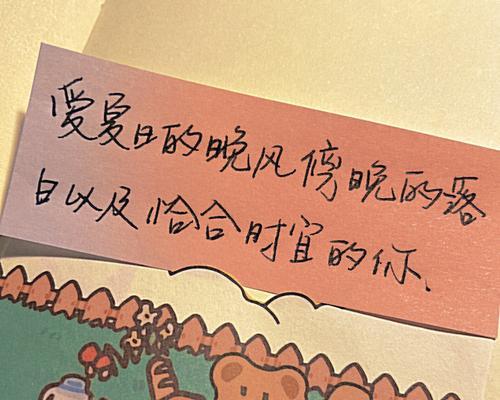 爱夏日的晚风傍晚的落
日以及恰合时宜的你.